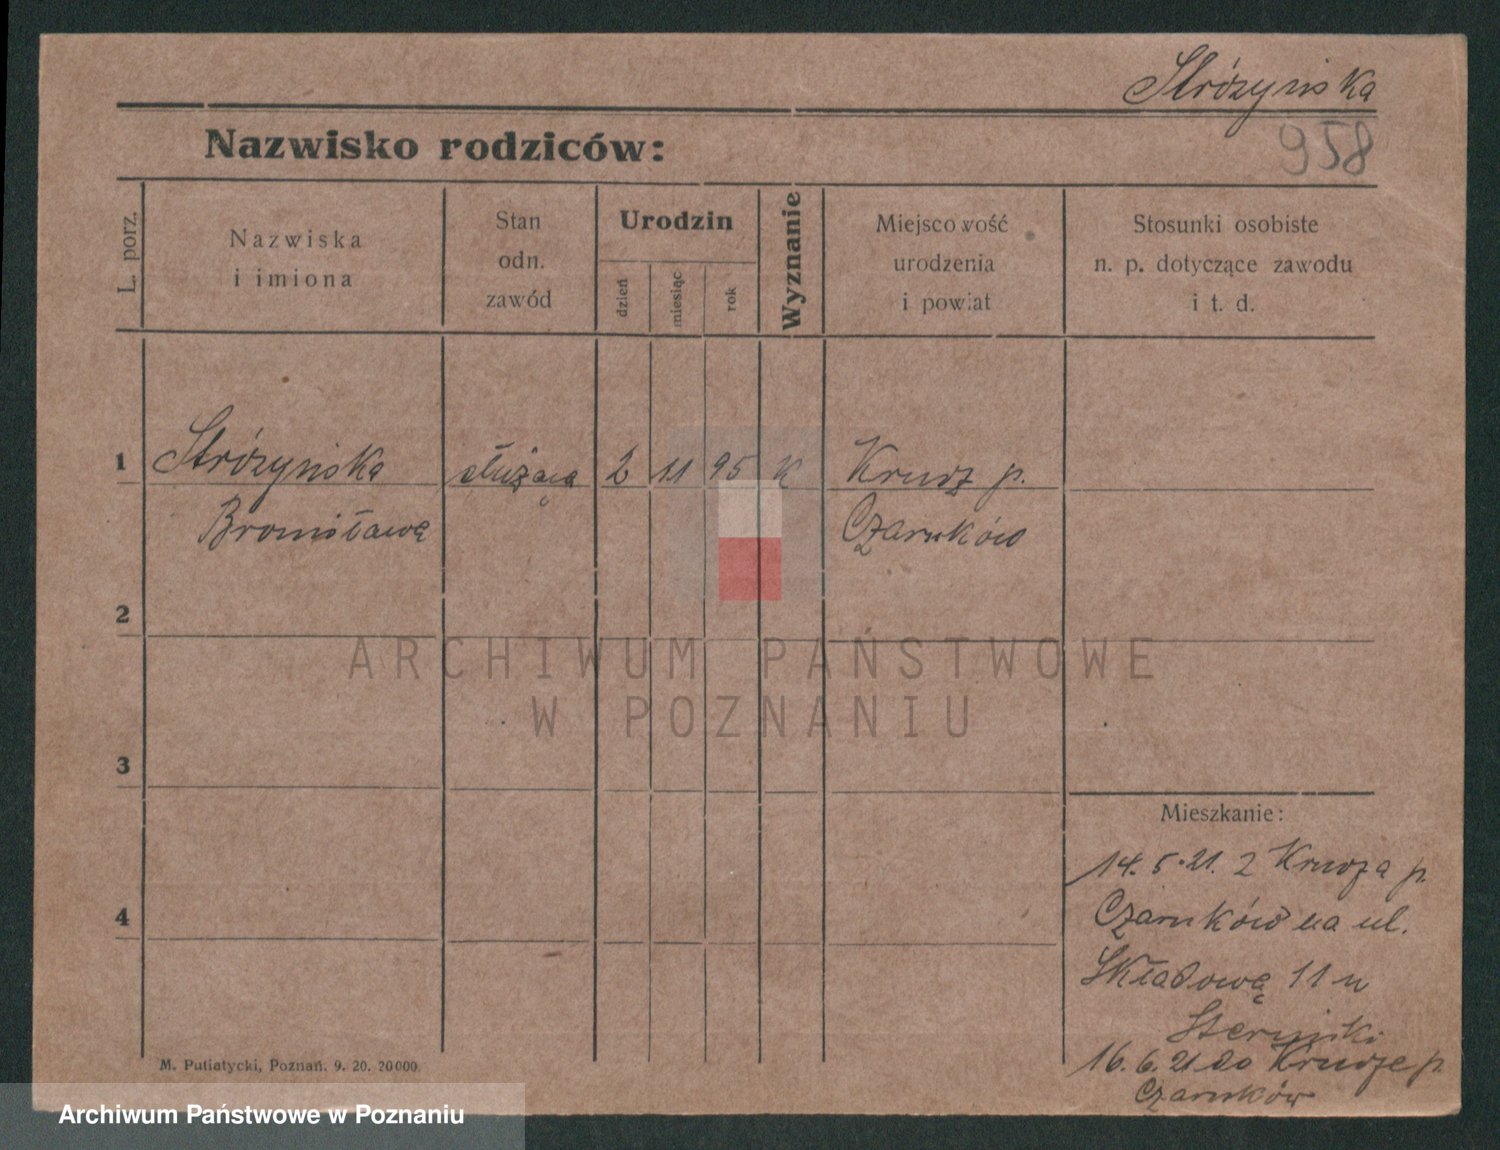 Stróżyńska
958
Nazwisko rodziców:
L. porz.
Nazwiska
i imiona
Stan
odn.
zawód
Urodzin
dzień
miesiąc
rok
Wyznanie
Miejscowość
urodzenia
i powiat
Stosunki osobiste
n. p. dotyczące zawodu
i t. d.
1
Stróżyńska
służąca
2
11
95
K
Krucz p.
Bronisława
Czarnków
2
ARCHIWUM PAŃSTWOWE
W POZNANIU
3
Mieszkanie:
14.5.21. z Krucza p.
4
Czarnków na ul.
Składową 11 u
16.6.21 do Krucze p.
Czarnków
M. Putiatycki, Poznań. 9. 20. 20000.
Archiwum Państwowe w Poznaniu